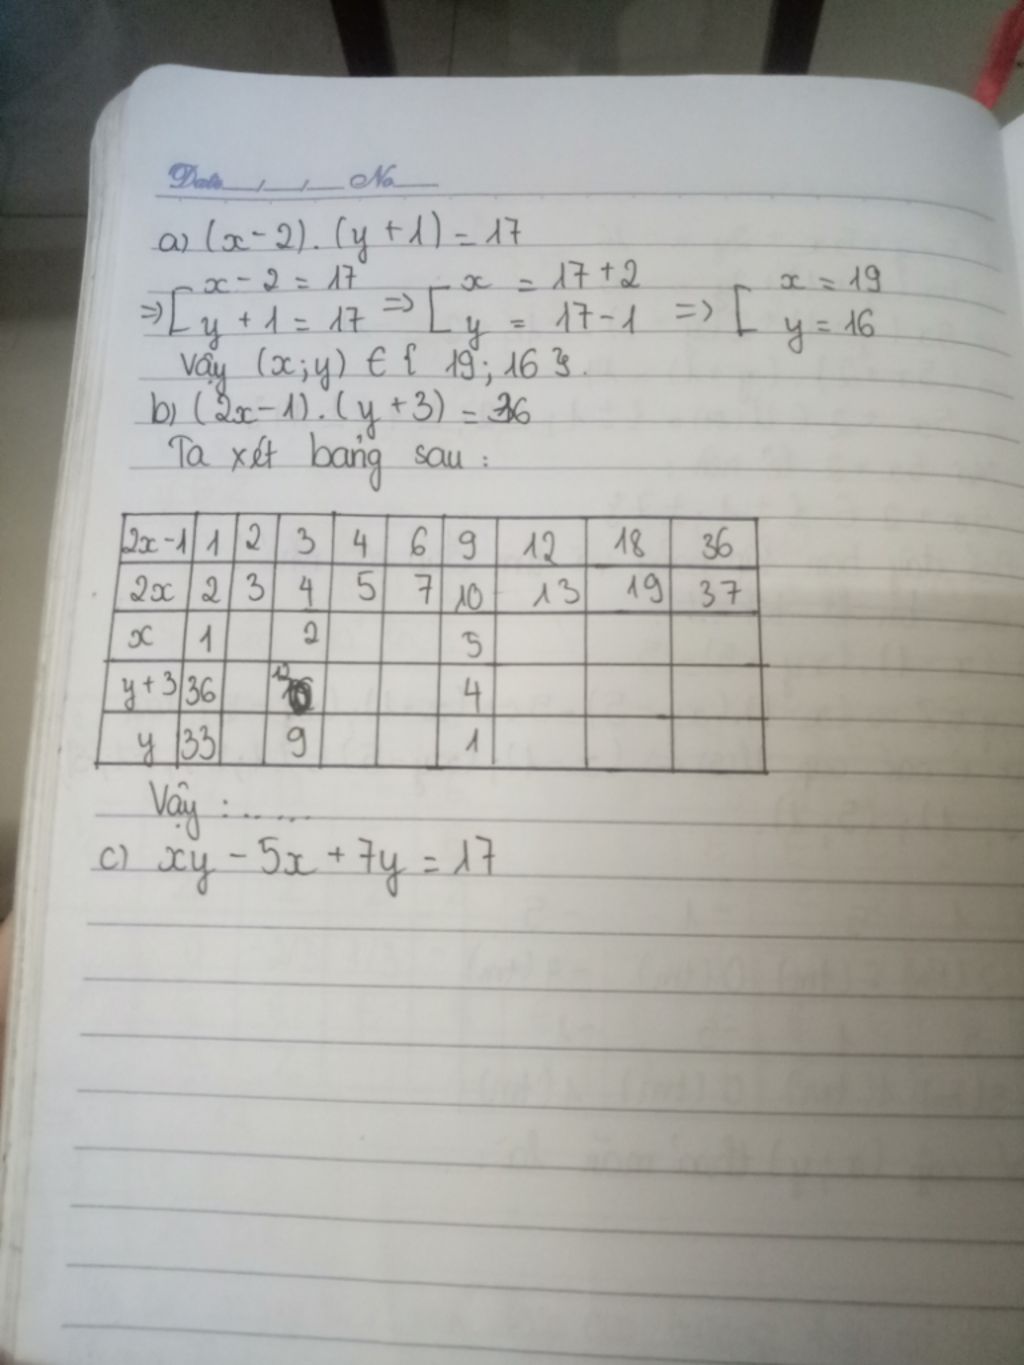 Date / / No
a) (x-2).(y+1)=17
=> [ x-2=17 => [ x = 17+2 => [ x=19
y+1=17 y = 17-1 y=16
Vậy (x;y) ∈ { 19;16 }.
b) (2x-1).(y+3)=36
Ta xét bảng sau:
2x-1 1 2 3 4 6 9 12 18 36
2x 2 3 4 5 7 10 13 19 37
x 1 2 5
y+3 36 12 4
y 33 9 1
Vậy:......
c) xy-5x+7y=17